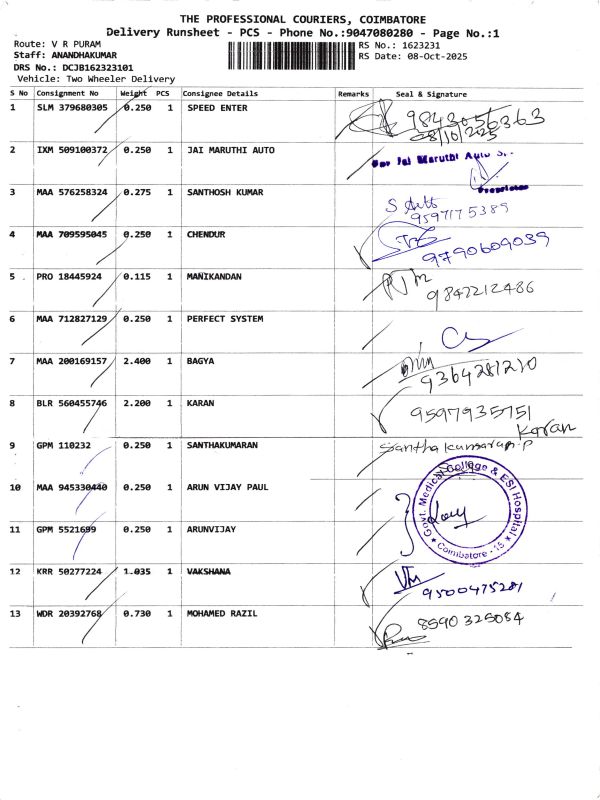 THE PROFESSIONAL COURIERS, COIMBATORE
Delivery Runsheet - PCS - Phone No.:9047080280 - Page No.:1
Route: V R PURAM
Staff: ANANDHAKUMAR
DRS No.: DCJB162323101
Vehicle: Two Wheeler Delivery
RS No.: 1623231
RS Date: 08-Oct-2025
S No Consignment No Weight PCS Consignee Details Remarks Seal & Signature
1 SLM 379680305 0.250 1 SPEED ENTER 9843056363
08/10/2025
2 IXM 509100372 0.250 1 JAI MARUTHI AUTO For Jai Maruthi Auto
Proprietor
3 MAA 576258324 0.275 1 SANTHOSH KUMAR
9597175389
4 MAA 709595045 0.250 1 CHENDUR
9790609039
5 PRO 18445924 0.115 1 MANIKANDAN
9842212486
6 MAA 712827129 0.250 1 PERFECT SYSTEM
7 MAA 200169157 2.400 1 BAGYA
9364281210
8 BLR 560455746 2.200 1 KARAN 9597935751
Karan
9 GPM 110232 0.250 1 SANTHAKUMARAN Santhakumaran.P
10 MAA 945330440 0.250 1 ARUN VIJAY PAUL
Govt. Medical College & ESI Hospital
Coimbatore - 15
11 GPM 5521699 0.250 1 ARUNVIJAY
12 KRR 50277224 1.035 1 VAKSHANA
9500475281
13 WDR 20392768 0.730 1 MOHAMED RAZIL 8590325084